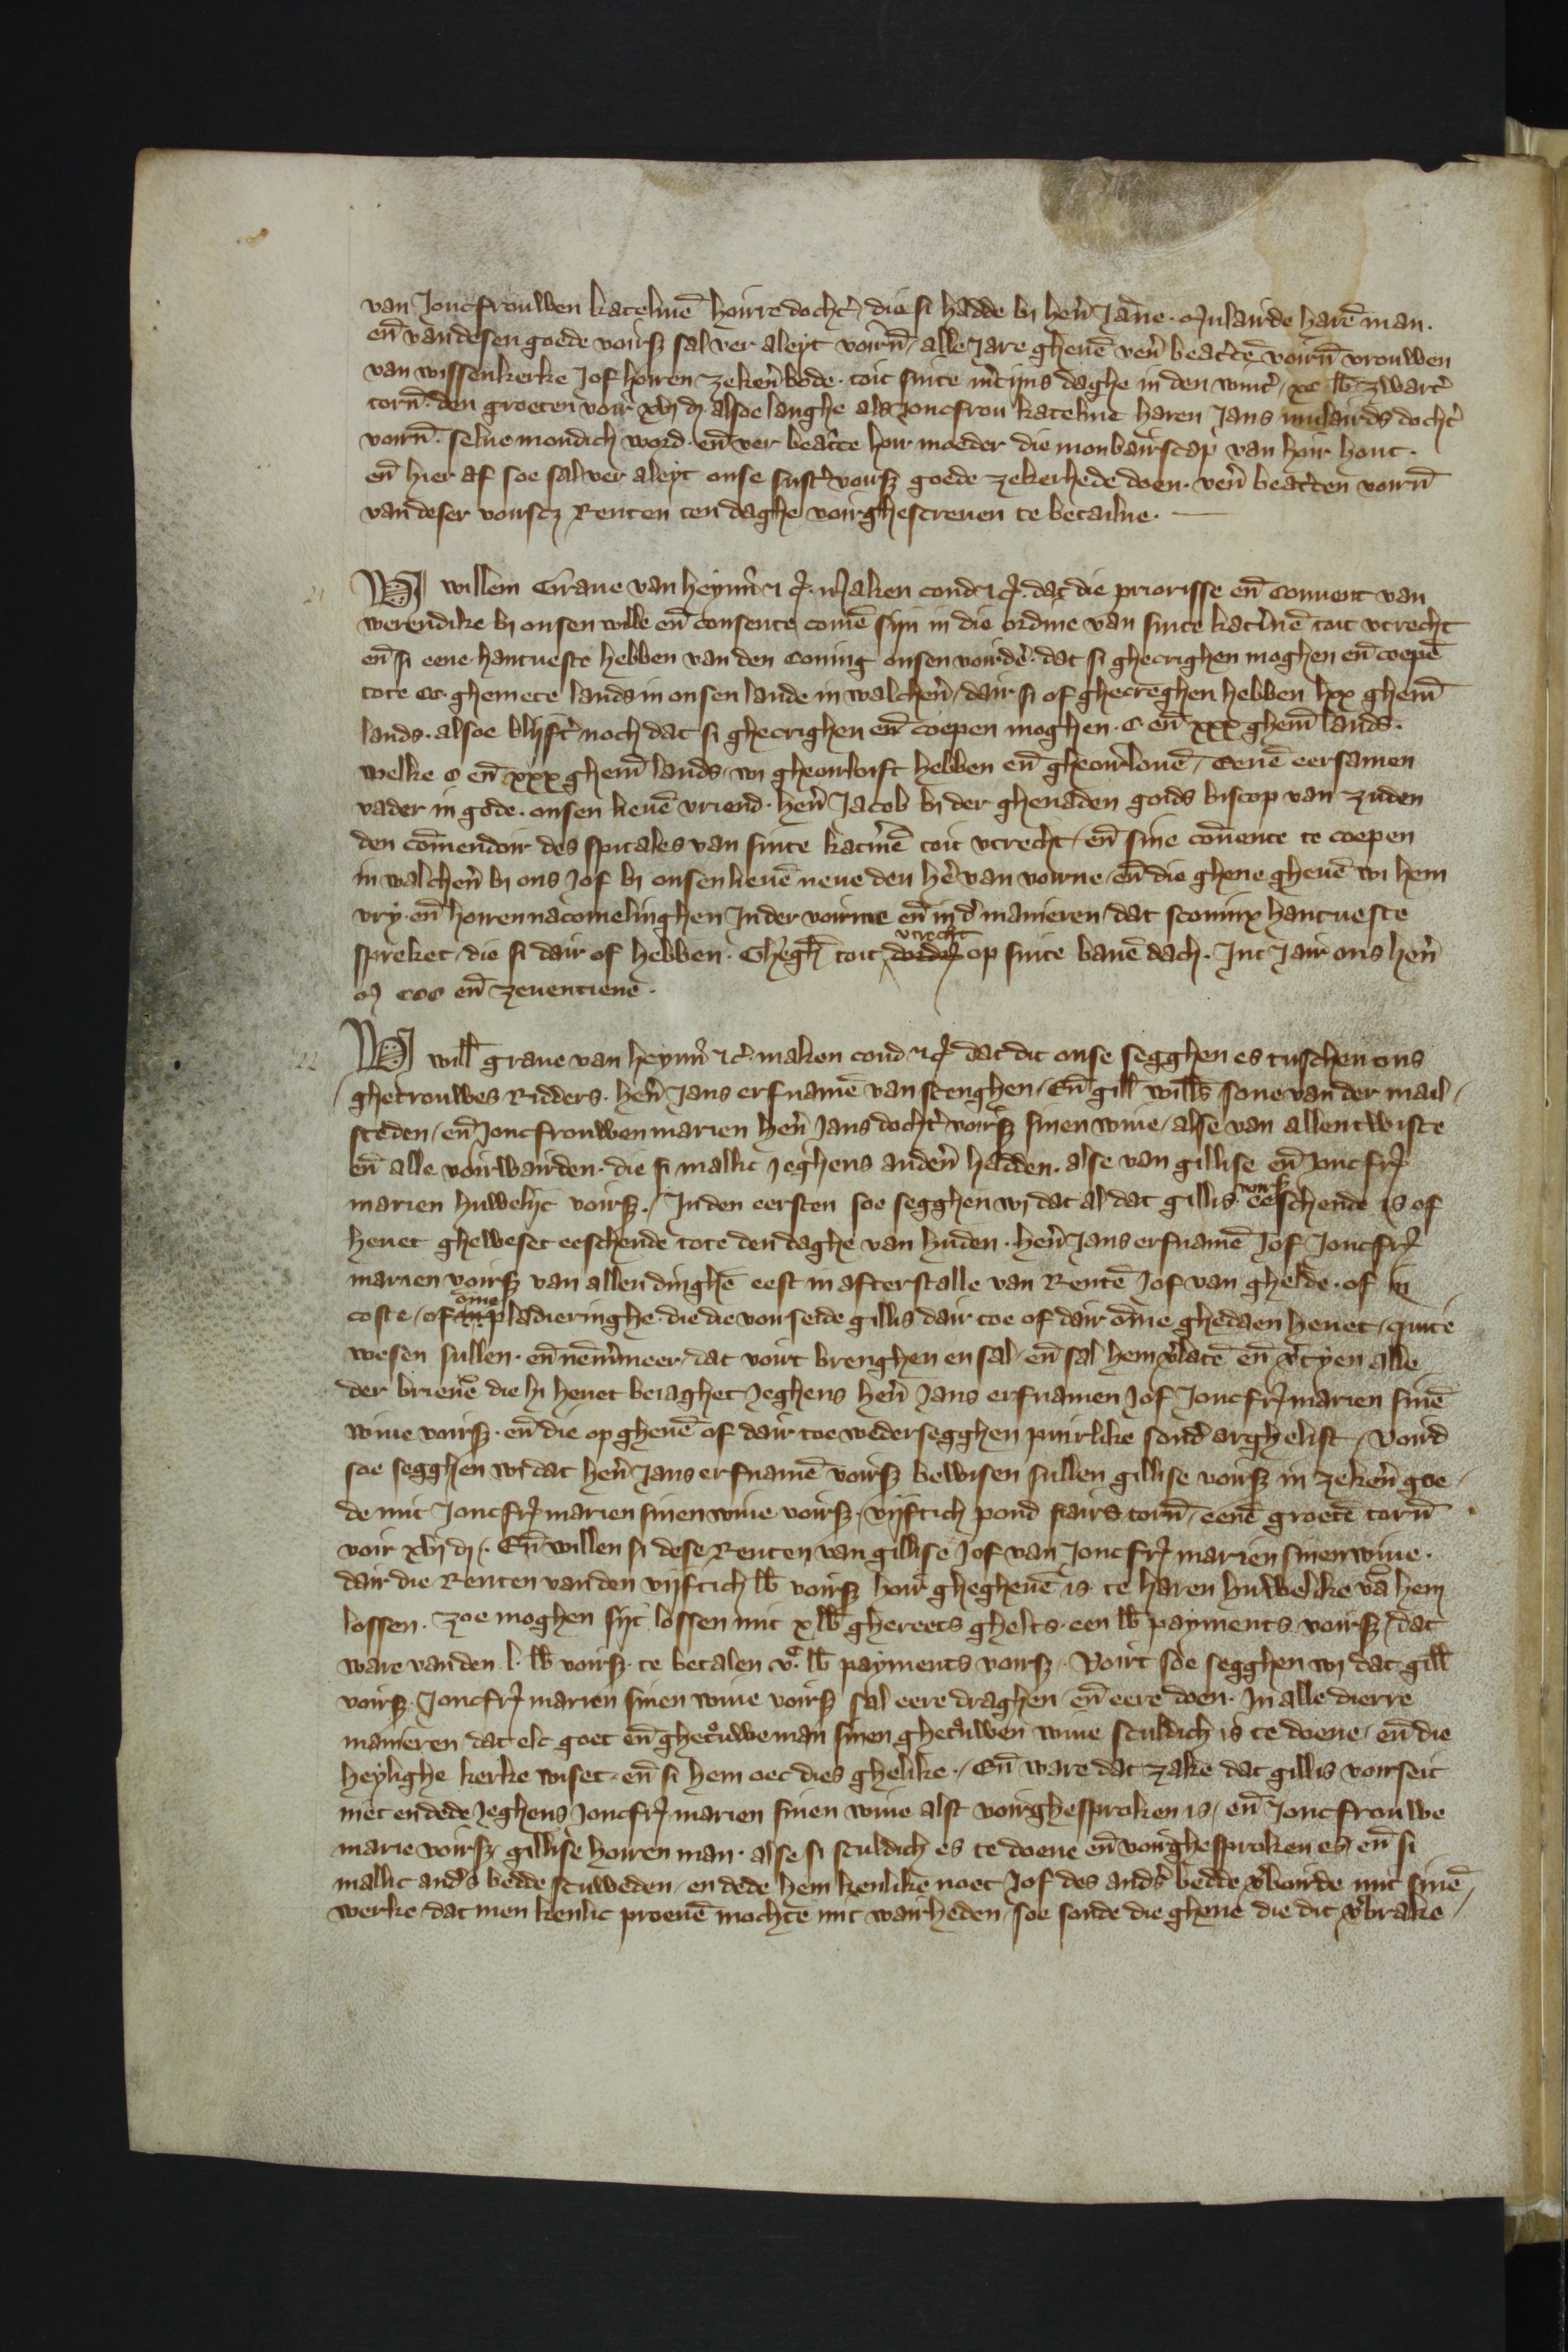 van Joncfrouwen katelinē hoirre docht᷑ die si hadde bi hēn Jāne. Mulairde harē man.
en̄ van desen goede voirß sal ver aleyt voirn̄ / alle Jare gheuē vēn beat᷑cē voirn̄ vrouwen
van wissenkerke Jof horen zekēn bode. toit sinte m᷑tijns daghe in den wint᷑ / xc lb zwart᷑
torn̄. den groeten voir xvj d. alsoe langhe als Joncfrou kateline haren Jans mulairds docht᷑
voirn̄. selue mondich word. en̄ ver beat᷑ce hoir moeder die monbairscap van hoir hout.
en̄ hier af soe sal ver aleyt onse sust᷑ voirß goede zekerhede doen. vēn beat᷑cen voirn̄
van deser voirscr Renten ten daghe voirghescreuen te betailne.
21 WJ willem Graue van heyn̄ ⁊ c᷑. Maken cond ⁊ c᷑. dat die priorisse en̄ Conuent van
werendike bi onsen wille en̄ consente comē sijn in die ordine van sinte kat᷑inē toit vtrecht
en̄ si eene hantueste hebben van den Coning onsen voirdē. dat si ghecrighen moghen en̄ coepē
tote cc. ghemete lands in onsen lande in walchēn / dair si of ghecreghen hebben lxx ghem̄
lands. alsoe blijft᷑ noch dat si ghecrighen en̄ coepen moghen. c en̄ xxx ghem̄ lands.
welke c en̄ xxx ghem̄ lands / wi gheoirloift hebben en̄ gheoirlouē / Eenē eersamen
vader in gode. onsen lieuē vriend. hēn Jacob bi der ghenaden goids biscop van zuden
den com̄endoir des spitales van sinte kat᷑inē toit vtrecht / en̄ sine cōuente te coepen
in walchēn bi ons Jof bi onsen lieuē neue den hē van voirne / en̄ die ghene gheuē wi hem
vry. en̄ horen nacomelinghen Jn der voirme en̄ in d᷑ manieren / dat sconinx hantueste
spreket / die si dair of hebben. Ghegh̄ toit vtrecht op sinte bauē dach. Jnt Jair ons hēn
M ccc en̄ zeuentiene.
22 WJ will̄ graue van heyn̄ ⁊ c᷑. maken cond ⁊ c᷑ dat dit onse segghen es tusschen ons
ghetrouwes Ridders. hēn Jans erfnamē van stenghen / En̄ gill̄ will̄s sone van der mail /
steden / en̄ Joncfrouwen marien hēn Jans docht᷑ voirß sinen wiue / alse van allen twiste
en̄ alle voirwairden. die si mallic jeghens andēn hadden. alse van gillise en̄ Joncfr᷑
marien huwelijc voirß. / Jnden eersten soe segghen wj dat al dat gillis voirß eeschende is of
heuet gheweset eeschende tote den daghe van huden. hēn Jans erfnamē Jof Joncfr᷑
marien voirß van allen dinghē eest in afterstalle van Rentē Jof van ghelde. of in
coste / of om̄e pladieringhe. die die voirseide gillis dair toe of dair om̄e ghedaen heuet / quite
wesen sullen. en̄ nēm̄meer / dat voirt brenghen en sal / en̄ sal hem v᷑latē en̄ v᷑tyen alle
der brieuē die hi heuet beiaghet Jeghens hēn Jans erfnamen Jof Joncfr᷑ marien sinē
wiue voirß. en̄ die op gheuē of dair toe wedersegghen puirlike sond᷑ arghelist / Voird
soe segghen wi dat hēn Jans erfnamē voirß bewisen sullen gillise voirß in zekēn goe /
de mit Joncfr᷑ marien sinen wiue voirß / vijftich pond siairs torn̄ / eenē groetē torn̄
voir xvj d /. En̄ willen si dese Renten van gillise Jof van Joncfr᷑ marien sinen wiue.
dair die Renten van den vijftich lb voirß hoir ghegheuē is te haren huwelike vā hem
lossen. zoe moghen sijt lossen mit x lb ghereets ghelts. een lb payments voirß / dat
ware van den l. lb voirß. te betalen v.c lb payments voirß. Voirt soe segghen wj dat gill̄
voirß Joncfr᷑ marien sinen wiue voirß sal eere draghen en̄ eere doen. Jn alle dierre
manieren dat elc goet en̄ ghet᷑uwe man sinen ghet᷑uwen wiue sculdich is te doene / en̄ die
heylighe kerke wiset. en̄ si hem oec dies ghelike. / En̄ ware dat zake dat gillis voirseit
niet en dede Jeghens Joncfr᷑ marien sinen wiue alst voirghesproken is / en̄ Joncfrouwe
marie voirß gillise horen man. alse si sculdich es te doene en̄ voirghesproken es / en̄ si
mallic and᷑s bedde scuweden / en dede hem kenlike noet Jof des and᷑s bedde v᷑boirde mit sinē
werke / dat men kenlic proeuē mochte mit wairheden / soe soude die ghene die dit v᷑brake /